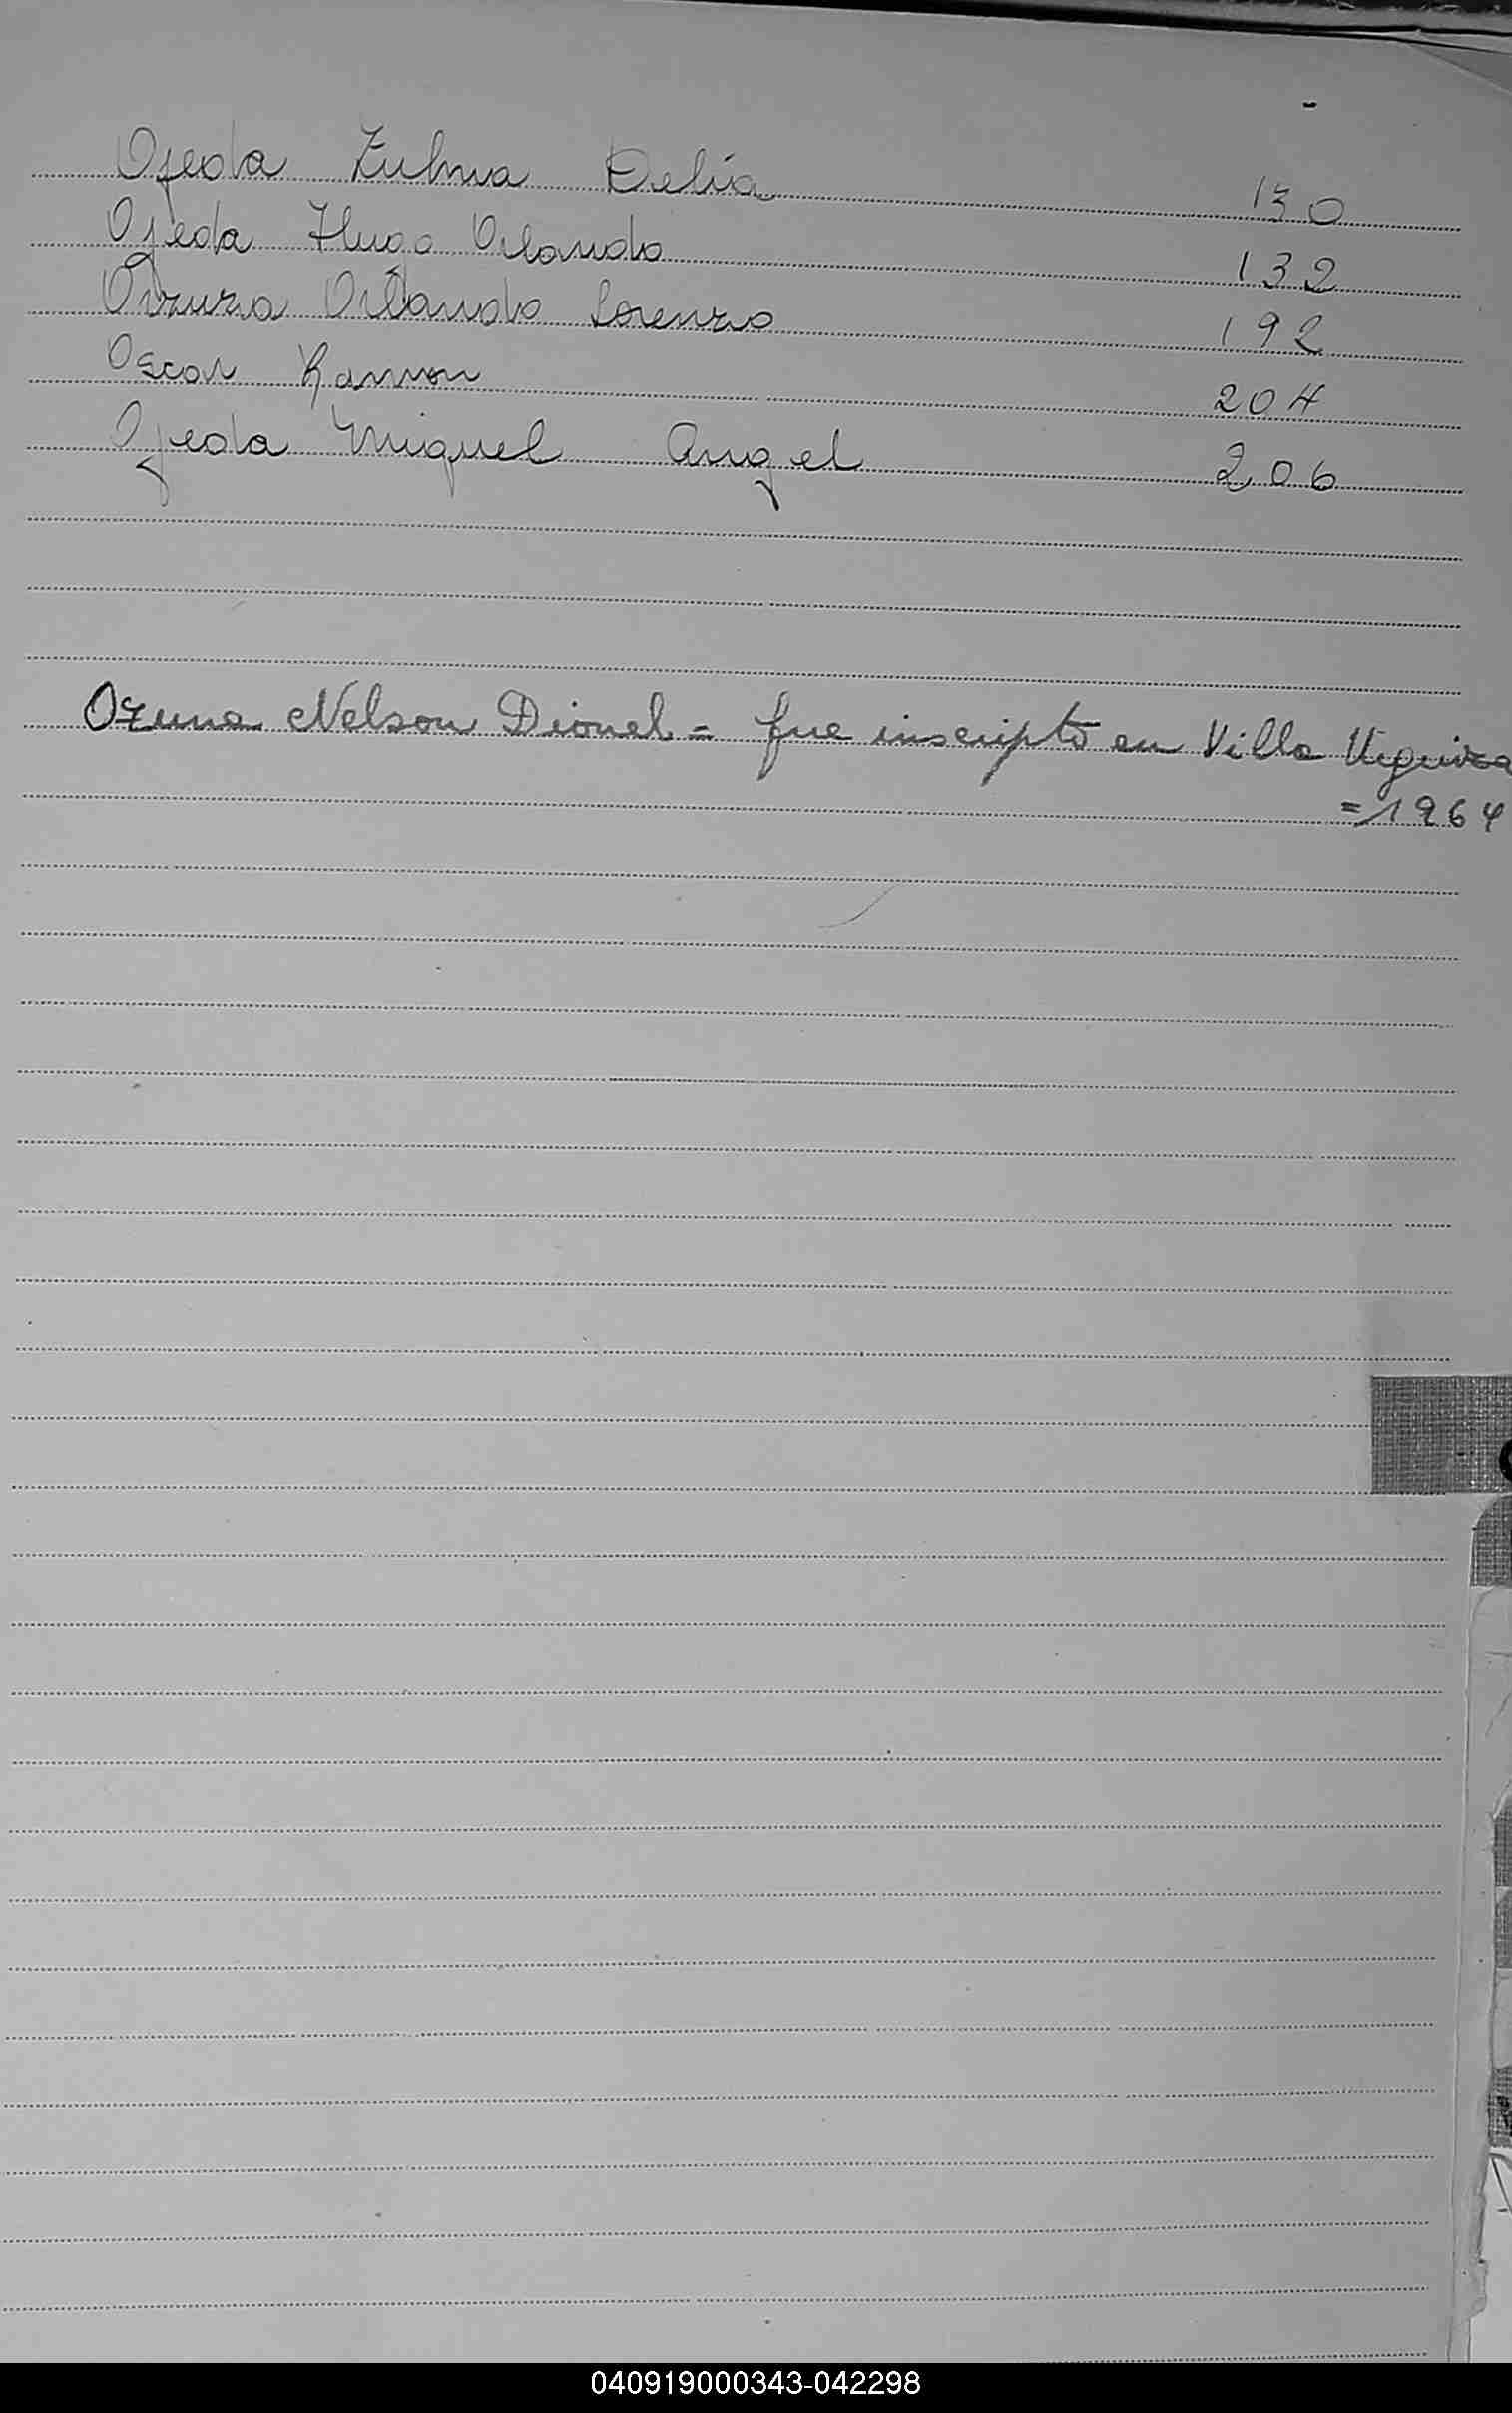 Ojeda Zulma Delia 130
Ojeda Hugo Orlando 132
Orzuza Orlando Lorenzo 192
Oscar Ramon 204
Ojeda Miguel Angel 206
Ozuna Nelson Dionel = fue inscripto en Villa Urquiza
= 1964
040919000343-042298